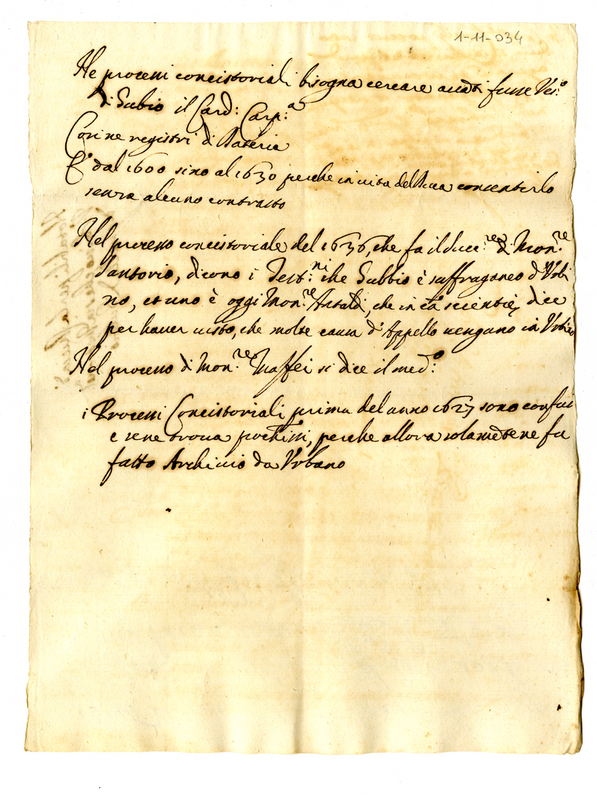 1-11-034
Ne processi concistoriali bisogna cercare fusse Ves:o
di Gubio il Card: Carp:a
Con ne registri di Dateria
E dal 1600 sino al 1630 perche in vita del consentirlo
senza alcuno contrasto
Nel processo concistoriale del 1636 che fa il di Mon:re
Santorio, dicono i Test:ni che Gubbio è suffraganeo d'Urbi
no, et uno è oggi Mon:re che in dice
per haver visto, che molte cause d'Appello vengano in Urbino
Nel processo di Mon:re Maffei si dice il med:o
i Processi Concistoriali prima del anno 1627 sono confusi
e sene trova pochissi, perche allora solamente ne fu
fatto Archivio da Urbano